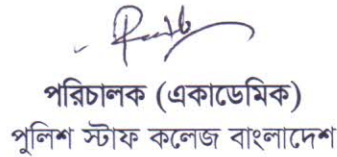 পরিচালক (একাডেমিক)
পুলিশ স্টাফ কলেজ বাংলাদেশ